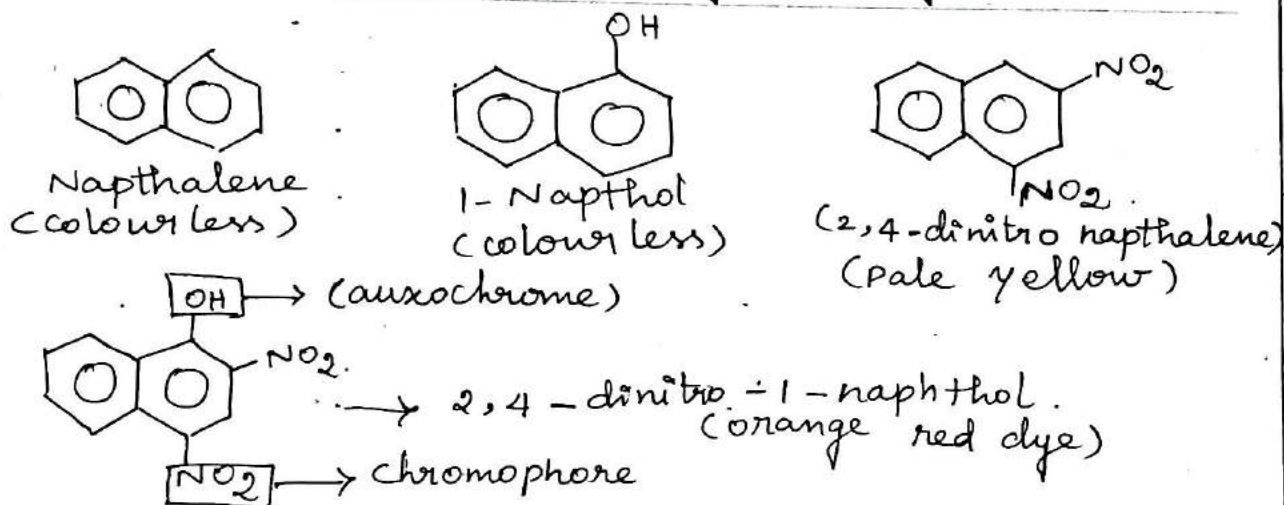 OH
NO2
Napthalene
(colourless)
1- Napthol
(colourless)
NO2.
(2,4-dinitro napthalene)
(pale yellow)
OH → (auxochrome)
NO2.
→ 2,4 - dinitro - 1 - naphthol.
(orange red dye)
NO2 → chromophore